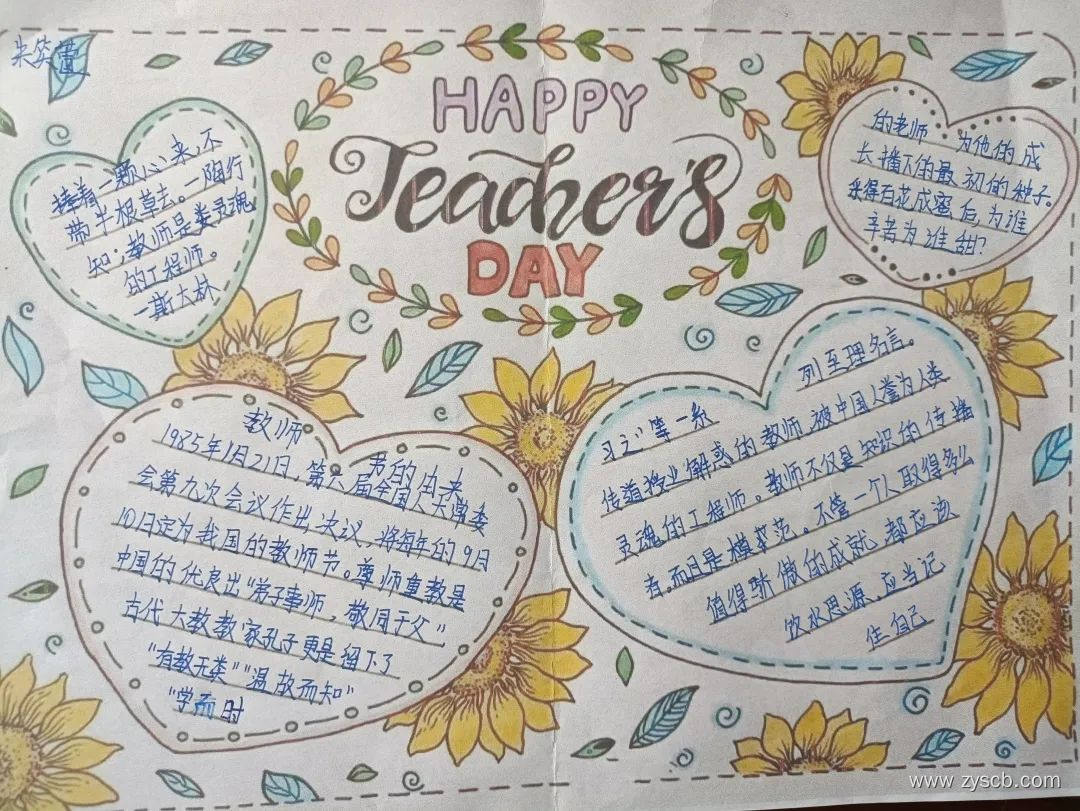 朱笑萱
HAPPY
Teacher's
DAY
捧着一颗心来,不
带半根草去。一陶行
知;教师是类灵魂
的工程师。
一斯大林
的老师 为他的成
长播下的最初的种子。
采得百花成蜜后,为谁
辛苦为谁甜?
教师
节的由来
1985年1月21日,第六届全国人大常委
会第九次会议作出决议,将每年的9月
10日定为我国的教师节。尊师重教是
中国的优良出"弟子事师,敬同于父"
古代大教教家孔子更是留下了
"有教无类""温故而知"
"学而时
习之"等一系
列至理名言。
传道授业解惑的教师,被中国人誉为人类
灵魂的工程师。教师不仅是知识的传播
者,而且是模范。不管一个人取得多么
值得骄傲的成就,都应该
饮水思源,应当记
住自己
www.zyscb.com